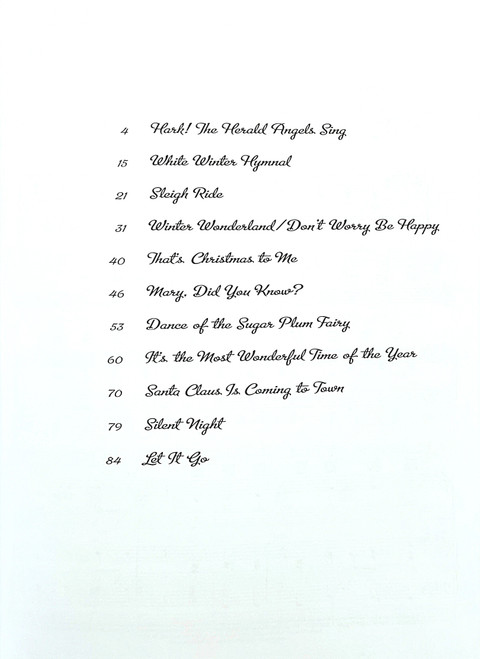 4 Hark! The Herald Angels Sing
15 White Winter Hymnal
21 Sleigh Ride
31 Winter Wonderland/Don't Worry Be Happy
40 That's Christmas to Me
46 Mary, Did You Know?
53 Dance of the Sugar Plum Fairy
60 It's the Most Wonderful Time of the Year
70 Santa Claus Is Coming to Town
79 Silent Night
84 Let It Go